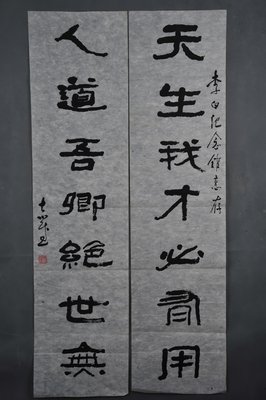 天生我才必有用
李白纪念馆志存
人道吾卿絕世無